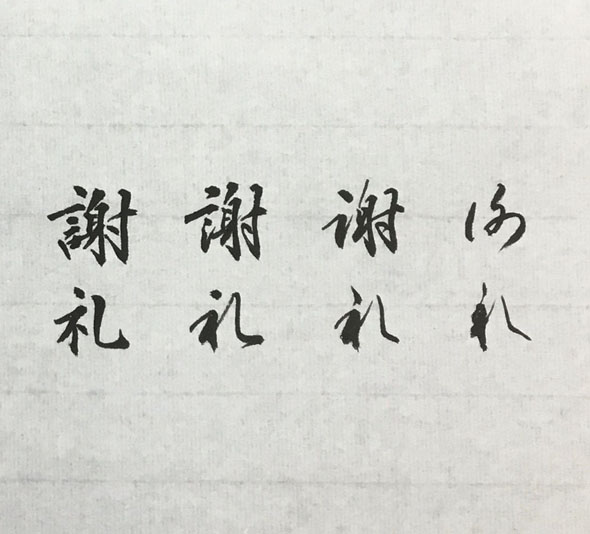 謝礼
謝礼
謝礼
謝礼